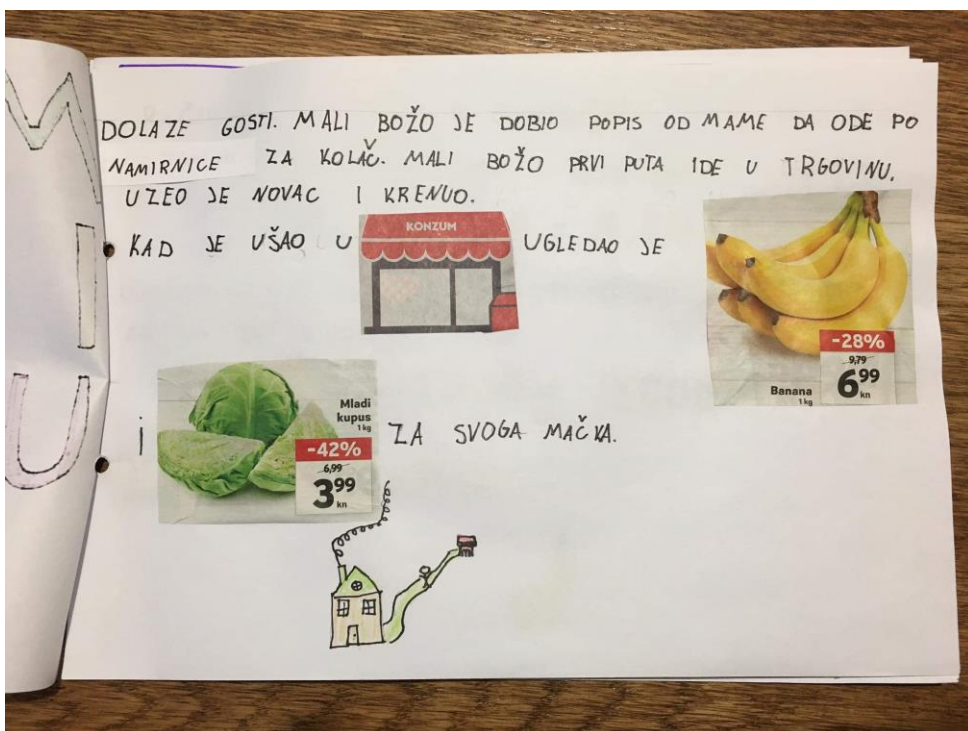 M
I
U
DOLAZE GOSTI. MALI BOŽO JE DOBIO POPIS OD MAME DA ODE PO
NAMIRNICE ZA KOLAČ. MALI BOŽO PRVI PUTA IDE U TRGOVINU.
UZEO JE NOVAC I KRENUO.
KAD JE UŠAO U
KONZUM
UGLEDAO JE
-28%
9,79
6 99
kn
Banana
1 kg
i
Mladi
kupus
1 kg
-42%
6,99
3 99
kn
ZA SVOGA MAČKA.